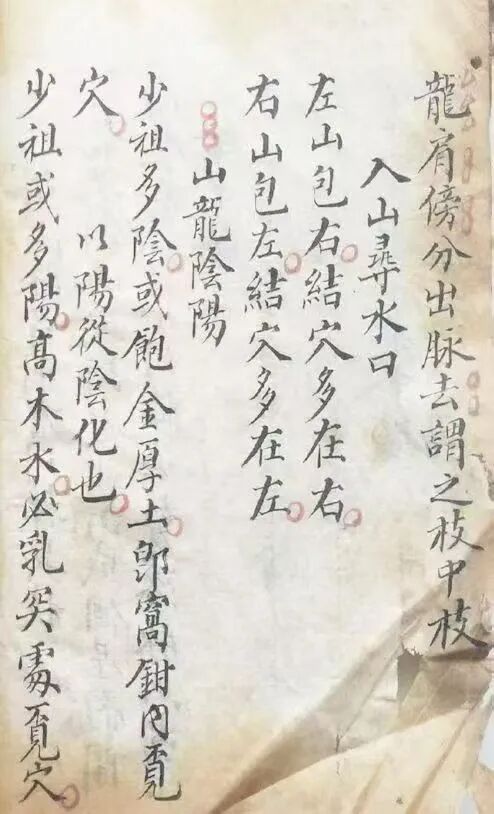 龍肩傍分出脉去謂之枝中枝
入山尋水口
左山包右結穴多在右
右山包左結穴多在左
山龍陰陽
少祖多陰或飽金厚土卽窩鉗內覔
穴 以陽從陰化也
少祖或多陽高木水必乳突處覔穴